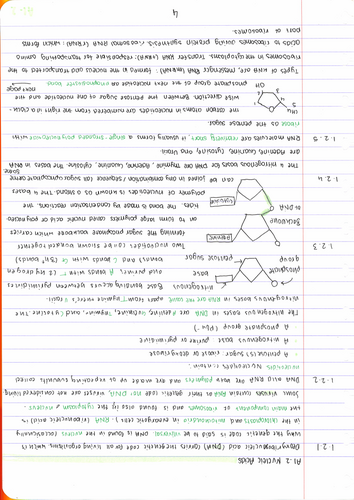 A1.2 Nucleic Acids
1.2.1 Deoxyribonucleic acid (DNA) stores the genetic code for all living organisms, which is
why the genetic code is said to be universal. DNA is found in the nucleus (occasionally
in the chloroplasts and mitochondria in eukaryotic cells). RNA (ribonucleic acid) is
the main component of ribosomes and is found also in the cytoplasm & nucleus.
Some viruses contain RNA as their genetic code not DNA; viruses are not considered living
1.2.2 DNA and RNA are both polymers and are made up of repeating subunits called
nucleotides. Nucleotides contain:
A pentose (5C) sugar: ribose or deoxyribose
A nitrogenous base: purine or pyrimidine
A phosphate group (PO₄³⁻)
The nitrogenous bases in DNA are adenine, guanine, thymine, and cytosine. The
nitrogenous bases in RNA are the same apart from Thymine where is Uracil.
phosphate group
pentose sugar
Nitrogenous base
Base bonding occurs between pyrimidines
and purines. A bonds with T (2 hydrogen
bonds) and C bonds with G (3 H bonds)
1.2.3 Two nucleotides can be shown bonded together
forming the sugar phosphate backbone which carries
on to form large polymers called nucleic acid or polynucleotide
Backbone
of DNA
PURINE
1.2.4 can be joined in any combination / sequence (as sugar phosphate same
The 4 nitrogenous bases for DNA are Thymine, Adenine, Guanine, Cytosine. The bases in RNA
are Adenine, Guanine, Cytosine and Uracil.
1.2.5 RNA molecules are usually short, it usually forms a single stranded polynucleotide with
ribose as the pentose sugar.
The carbon atoms in nucleotides are numbered from the right in a clock-
wise direction. Between the pentose sugar of one nucleotide and the
phosphate group of the next nucleotide
next page
Types of RNA are, messenger RNA (mRNA): forms in the nucleus and transported to the
ribosomes in the cytoplasm. Transfer RNA (tRNA): responsible for transporting amino
acids to ribosomes during protein synthesis. Ribosomal RNA (rRNA): which forms
part of ribosomes.
4